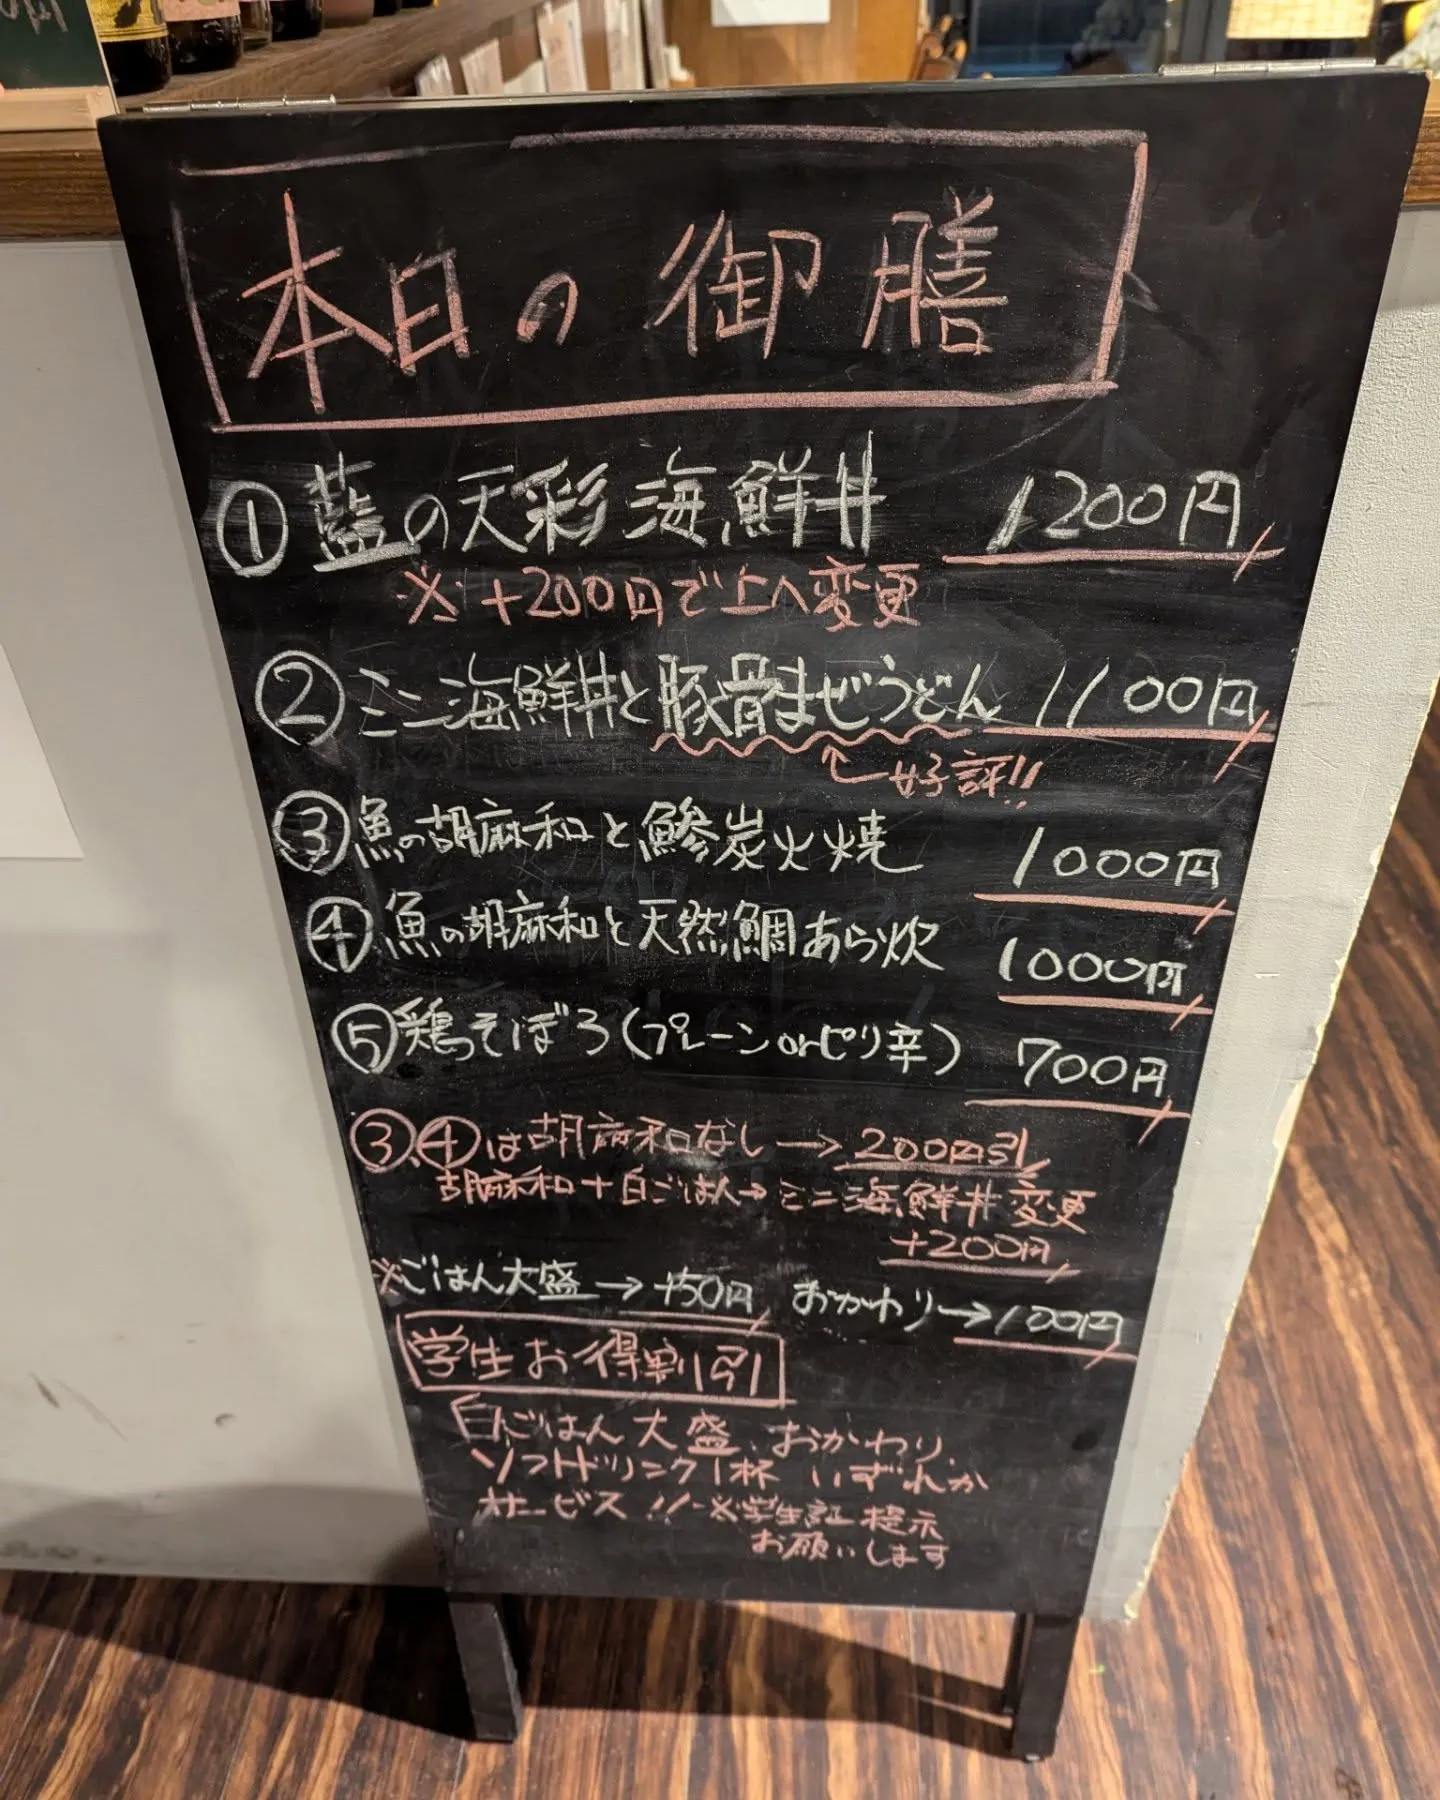 本日の御膳
①藍の天彩海鮮丼 1200円
※+200円で上へ変更
②ミニ海鮮丼と豚骨まぜうどん 1100円
好評!!
③魚の胡麻和と鯵炭火焼 1000円
④魚の胡麻和と天然鯛あら炊 1000円
⑤鶏そぼろ(プレーンorピリ辛) 700円
③、④は胡麻和なし→200円引
胡麻和+白ごはん→ミニ海鮮丼変更
+200円
※ごはん大盛→+50円 おかわり→100円
学生お得割引
白ごはん大盛、おかわり、
ソフトドリンク1杯 いずれか
サービス!! ※学生証提示
お願いします